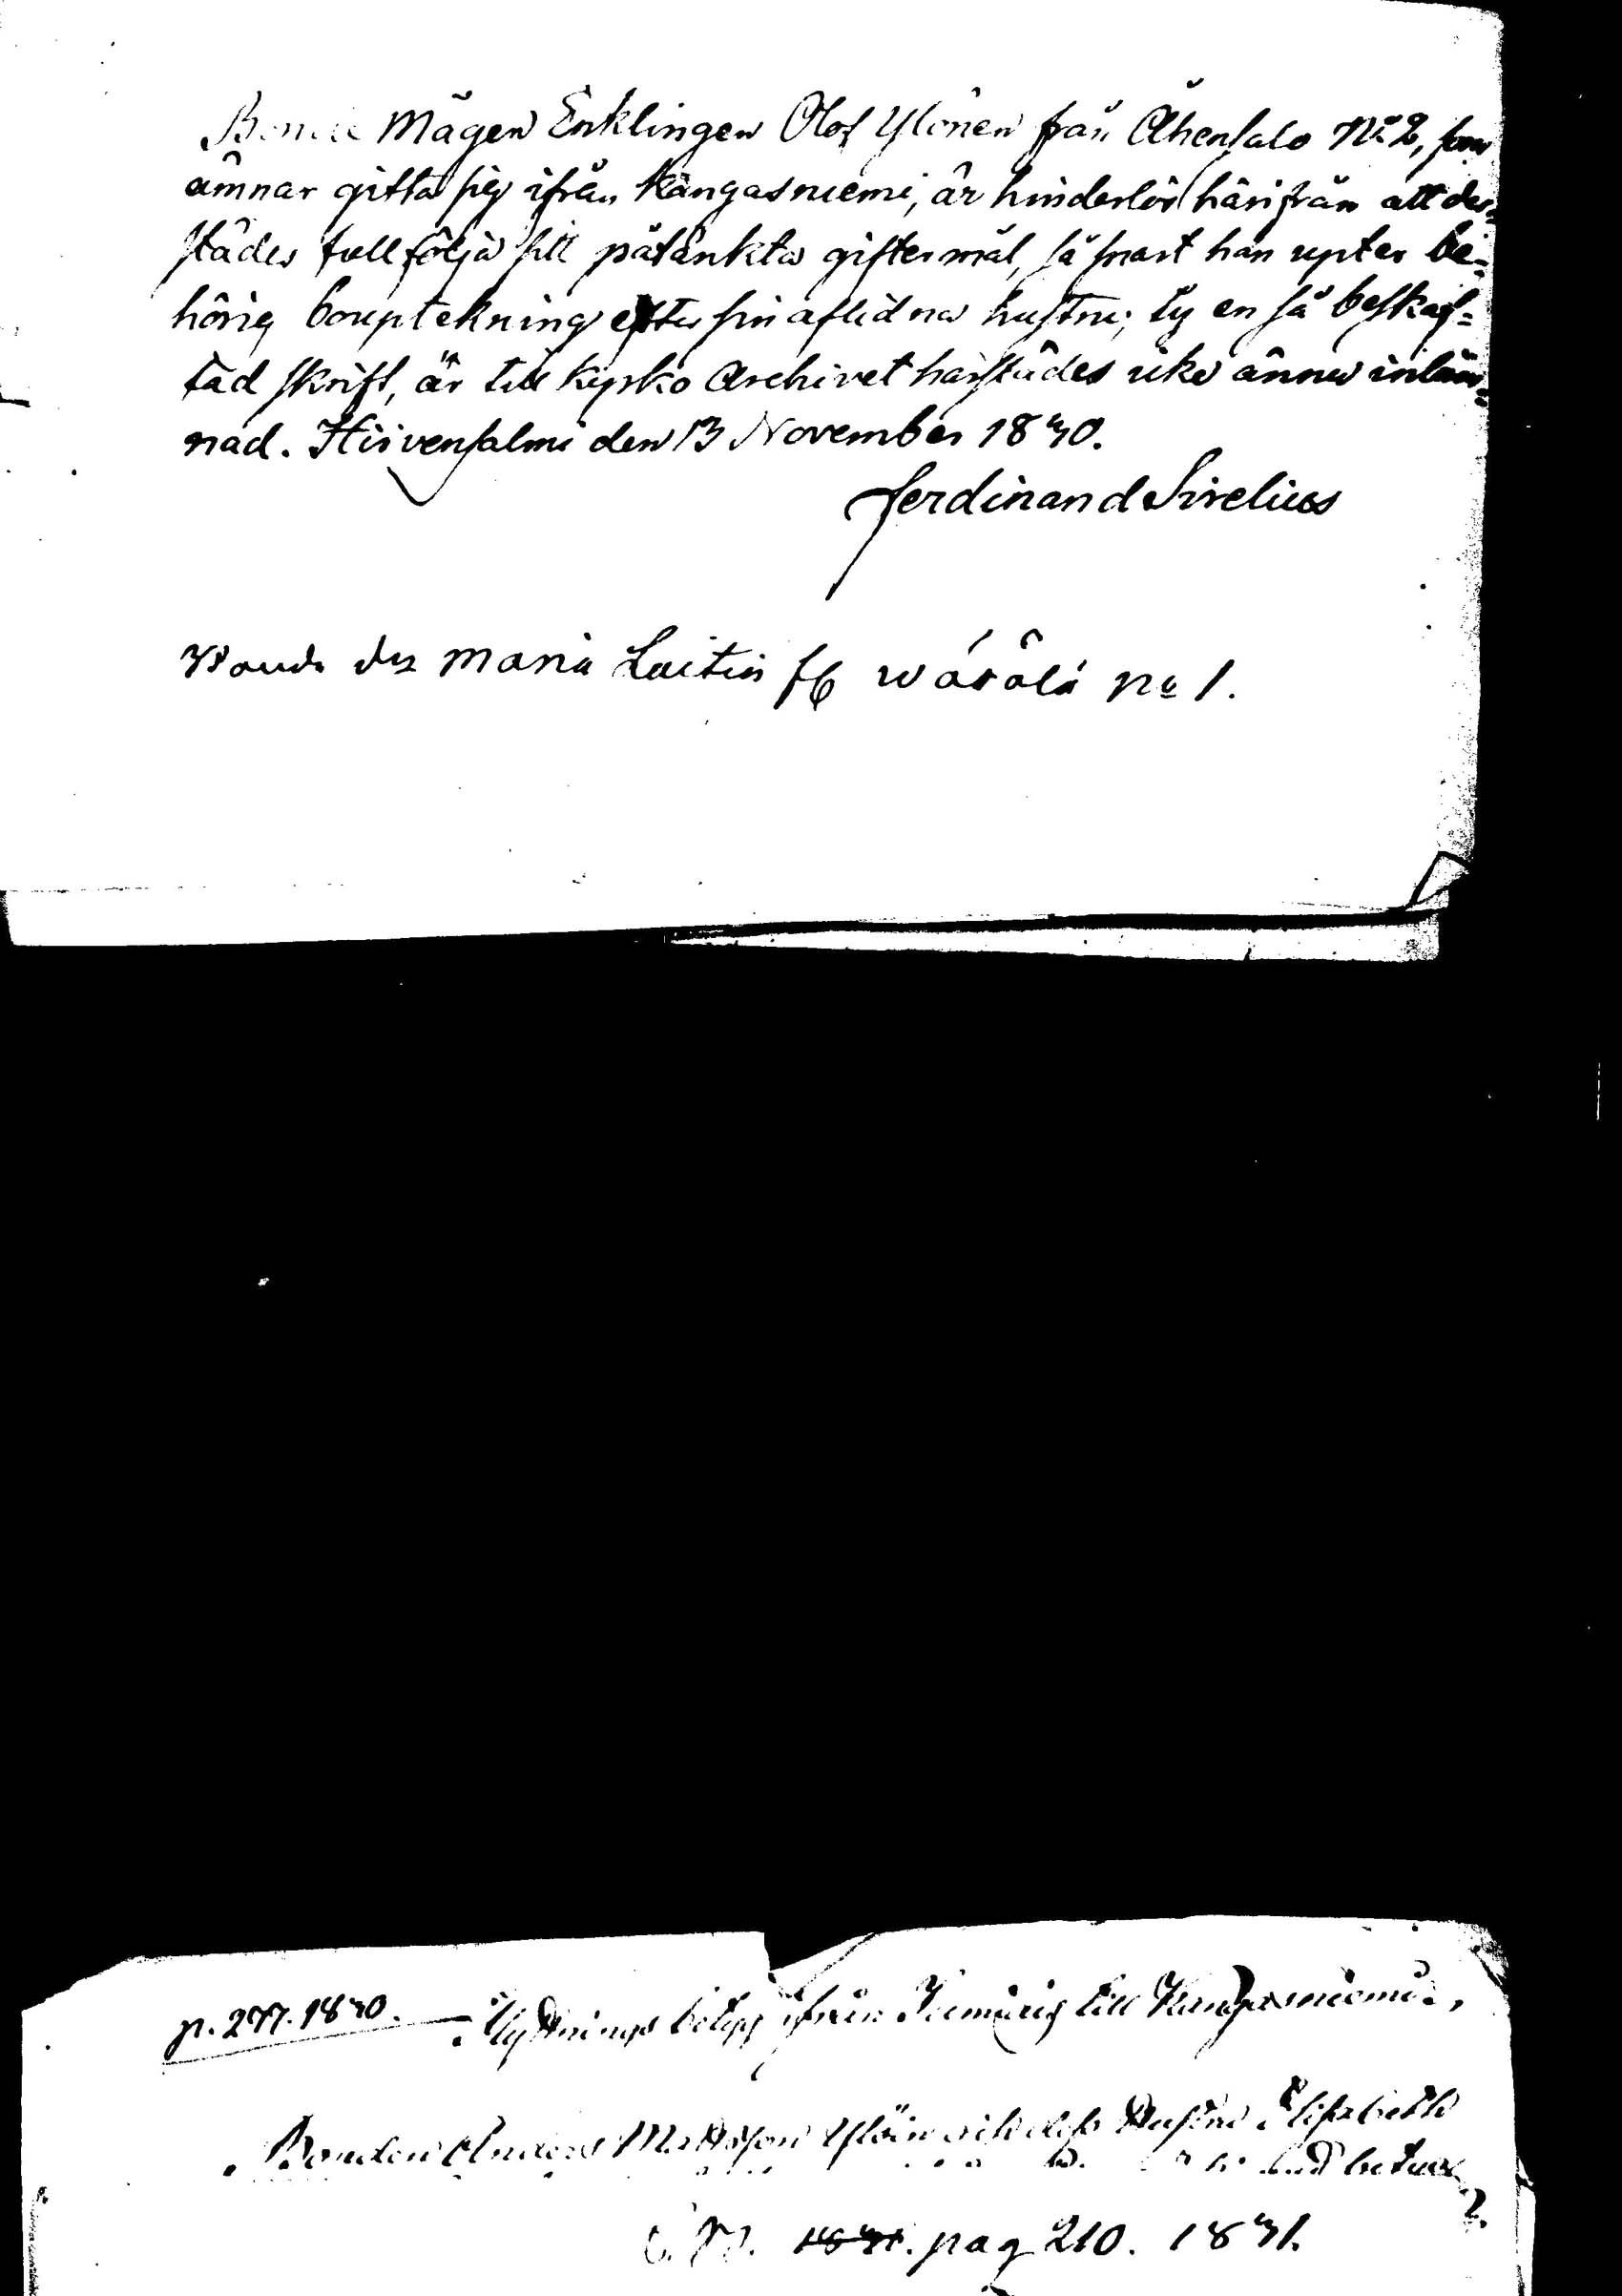 Bonde Mågen Enklingen Olof Ylönen från Ähensalo No 2, som
ämnar gifta sig ifrån Kangasniemi, är hinderlös härifrån att der=
städes fullfölja sitt påtänkta giftermål, så snart han upter be=
hörig bouptekning efter sin aflidna hustru; ty en så beskaf=
fad skrift, är till Kyrko Archivet härstädes icke ännu inläm=
nad. Hirvensalmi den 13 November 1830.
Ferdinand Sirelius
Bonde dr Maria Laitin fr Wäsälä No 1.
p. 277. 1830. Flyttnings betyg ifrån till Kangasniemi.,
Bonden Anders Mattsson Ylöin och dess Hustru Elisabeth
1831. pag 210. 1831.